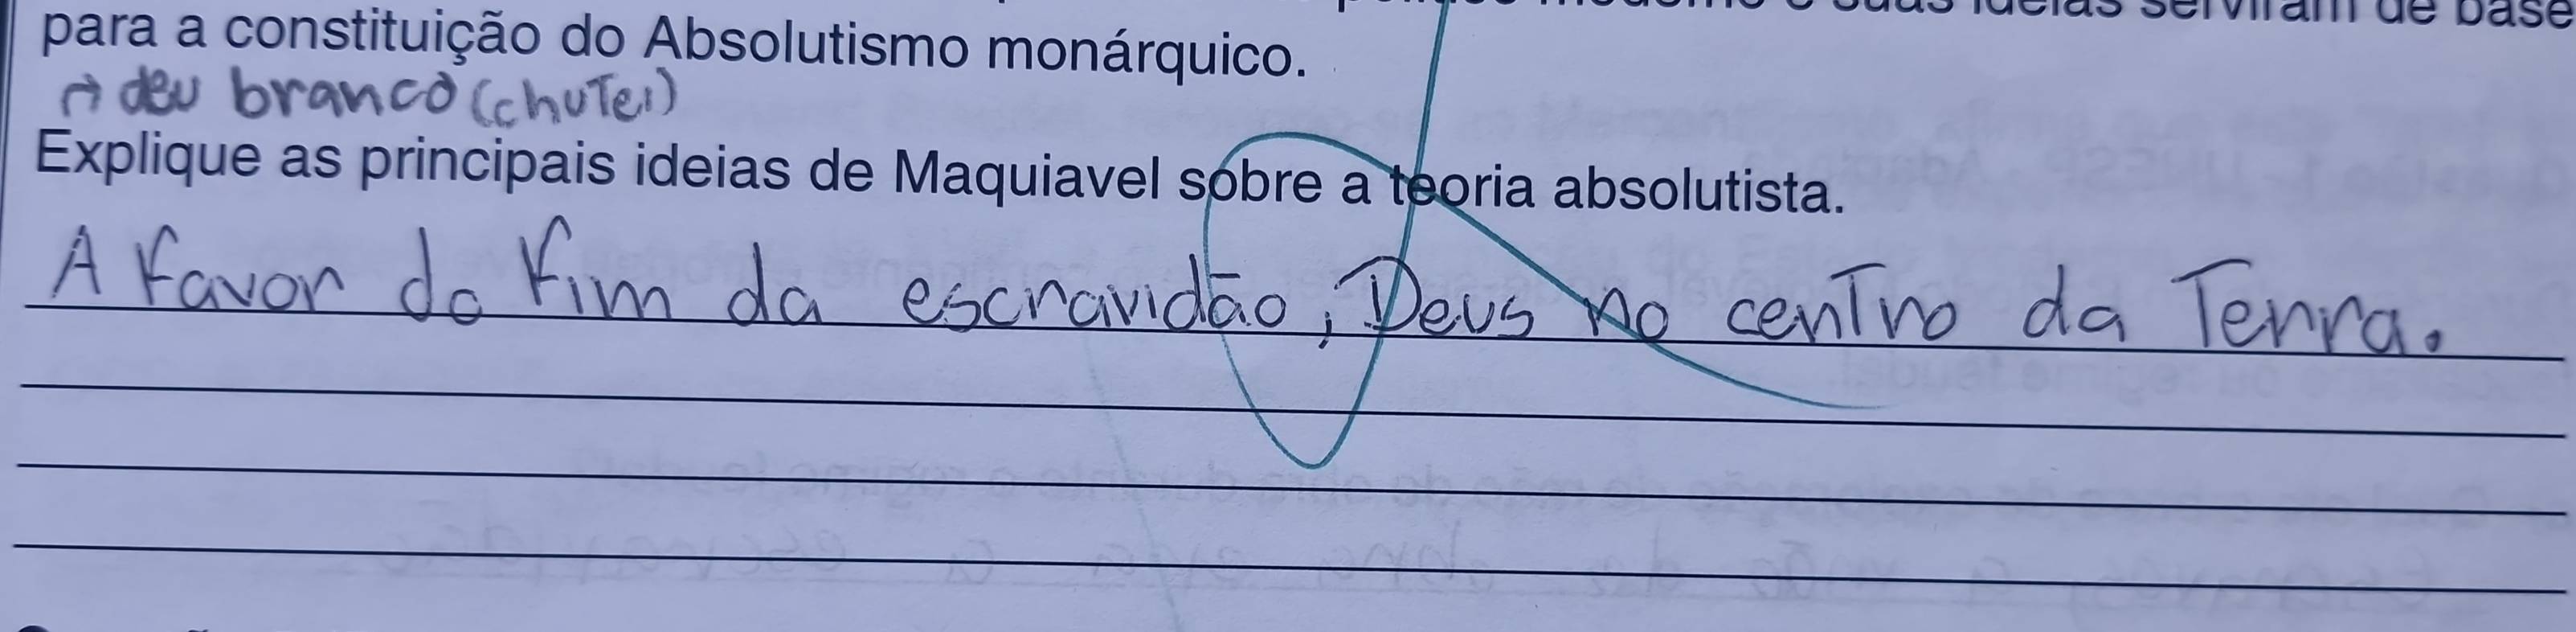 suas ideias serviram de base
para a constituição do Absolutismo monárquico.
→ deu branco (chutei)
Explique as principais ideias de Maquiavel sobre a teoria absolutista.
A favor do fim da escravidão, Deus no centro da Terra.